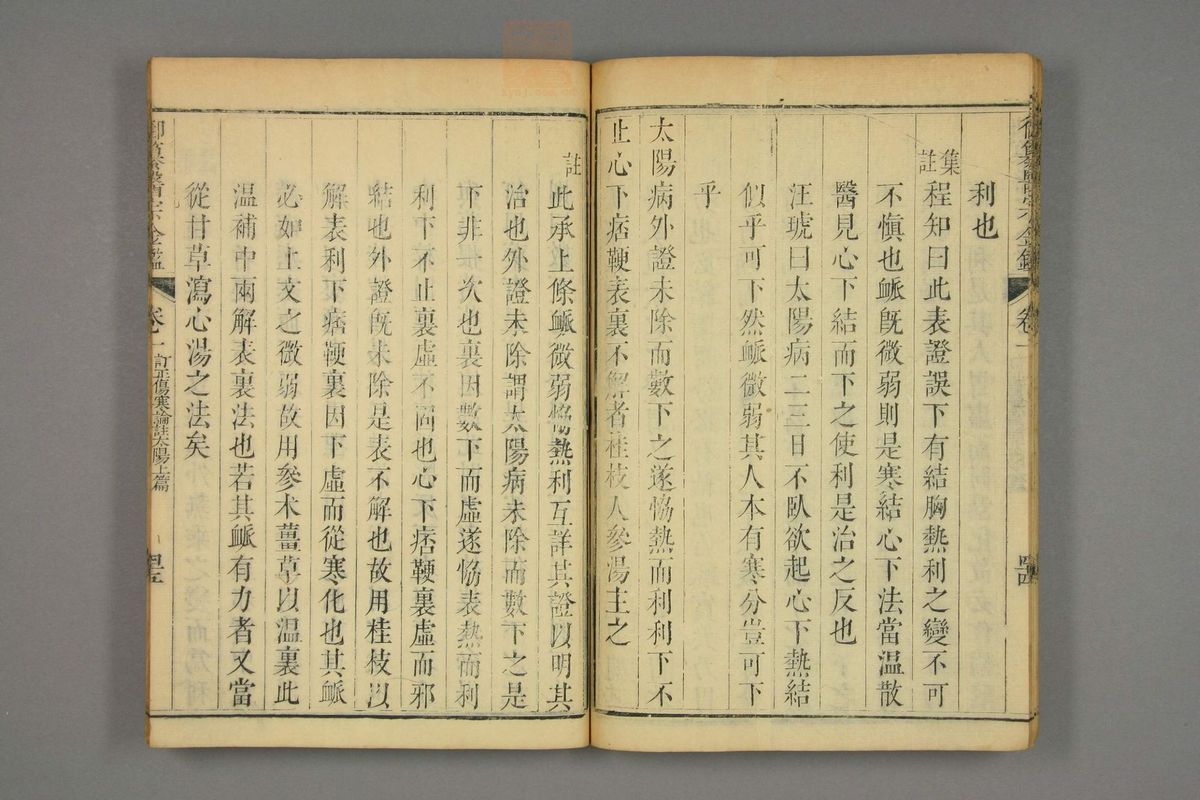 利也
集註
程知曰此表證誤下有結胸熱利之變不可
不慎也衇旣微弱則是寒結心下法當温散
醫見心下結而下之使利是治之反也
汪琥曰太陽病二三日不臥欲起心下熱結
似乎可下然衇微弱其人本有寒分豈可下
乎
太陽病外證未除而數下之遂恊熱而利利下不
止心下痞鞕表裏不解者桂枝人參湯主之
註
此承上條衇微弱恊熱利互詳其證以明其
治也外證未除謂太陽病未除而數下之是
下非一次也裏因數下而虛遂恊表熱而利
利下不止裏虛不固也心下痞鞕裏虛而邪
結也外證旣未除是表不解也故用桂枝以
解表利下痞鞕裏因下虛而從寒化也其衇
必如上文之微弱故用參术薑草以温裏此
温補中兩解表裏法也若其衇有力者又當
從甘草瀉心湯之法矣
御纂醫宗金鑑
卷一
訂正傷寒論註太陽上篇
四五